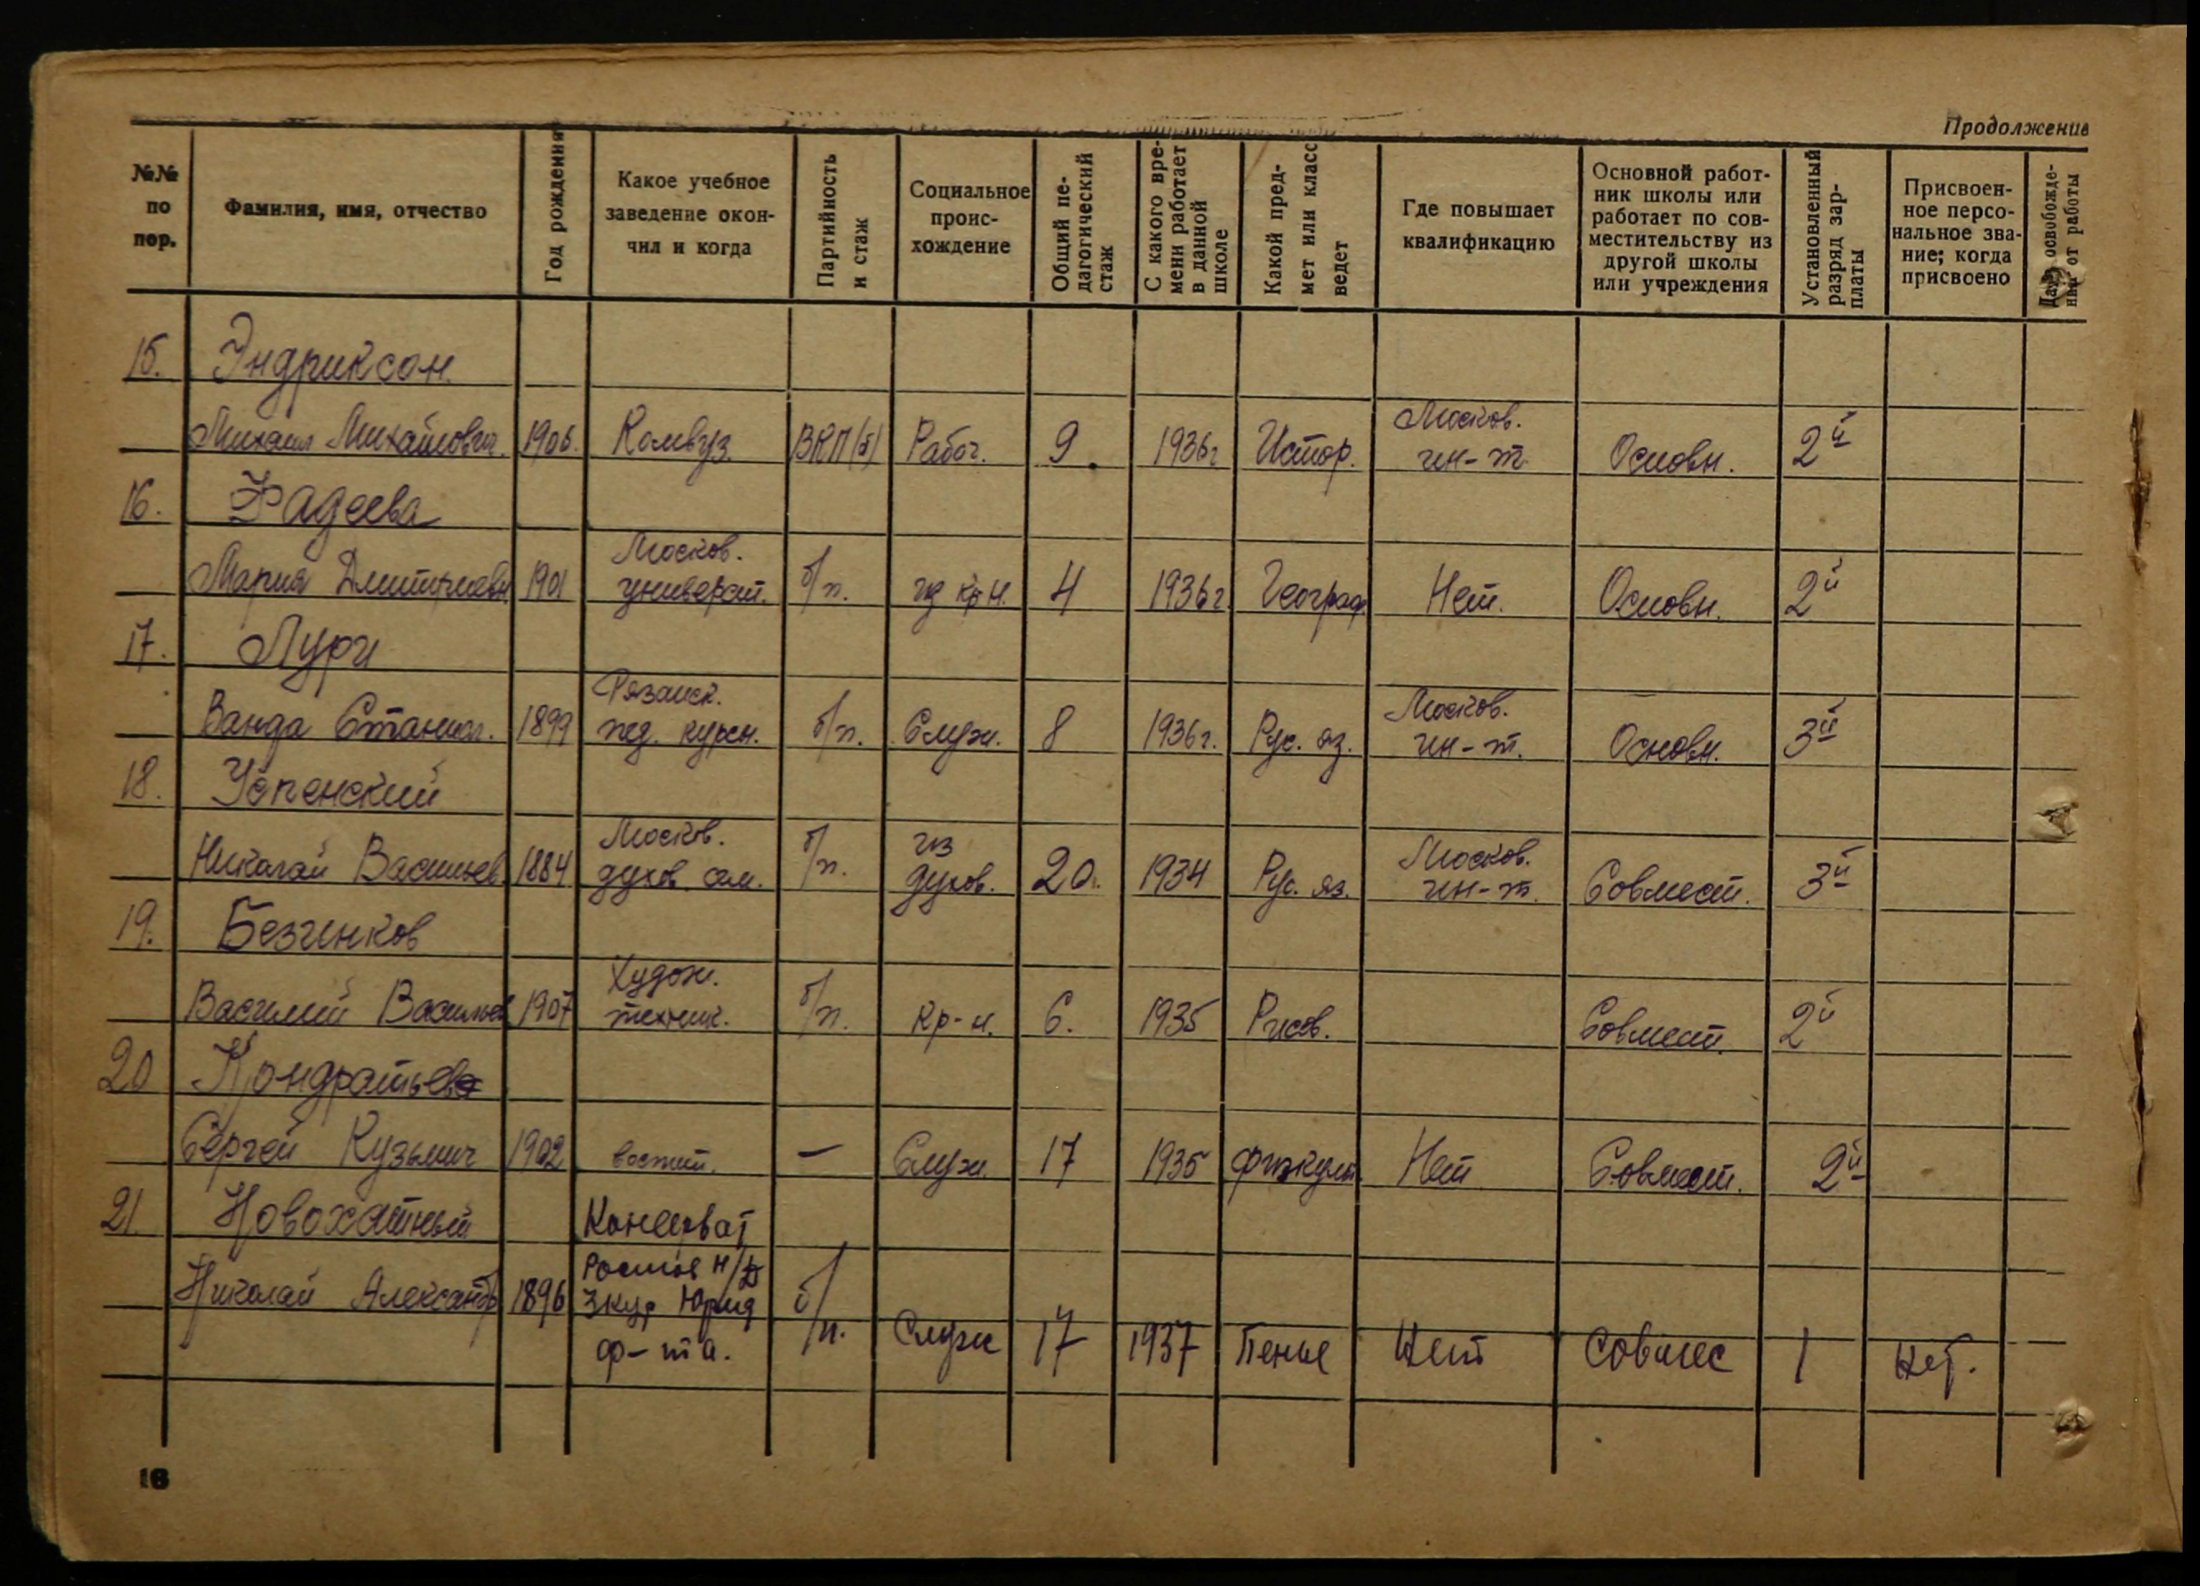 Продолжение
№№ по пор.
Фамилия, имя, отчество
Год рождения
Какое учебное заведение окончил и когда
Партийность и стаж
Социальное происхождение
Общий педагогический стаж
С какого времени работает в данной школе
Какой предмет или класс ведет
Где повышает квалификацию
Основной работник школы или работает по совместительству из другой школы или учреждения
Установленный разряд зарплаты
Присвоенное персональное звание; когда присвоено
Дата освобождения от работы
15. Эндриксон
Москов.
Михаил Михайлович. 1906. Комвуз. ВКП(б) Рабоч. 9. 1936г Истор. ин-т Основн. 2й
16. Фадеева
Москов.
Мария Дмитриевн. 1901 университ. б/п. из кр-н. 4 1936г. Географ. Нет. Основн. 2й
17. Лури
Рязанск. Москов.
Ванда Станисл. 1899 пед. курсы. б/п. Служ. 8 1936г. Рус. яз. ин-т. Основн. 3й
18. Успенский
Москов. из Москов.
Николай Васильев. 1884 духов. сем. б/п. духов. 20. 1934 Рус. яз. ин-т. Совмест. 3й
19. Безчинков
Худож.
Василий Васильев 1907 техник. б/п. кр-н. 6. 1935 Рисов. Совмест. 2й
20 Кондратьев
Сергей Кузьмич 1902 — Служ. 17 1935 физкульт. Нет Совмест. 2й
21. Новохатный Консерват
Ростов н/Д
Николай Александр 1896 3 кур Юрид б/п. Служ 17 1937 Пенье Нет Совмес 1 Нет.
ф-та.
16